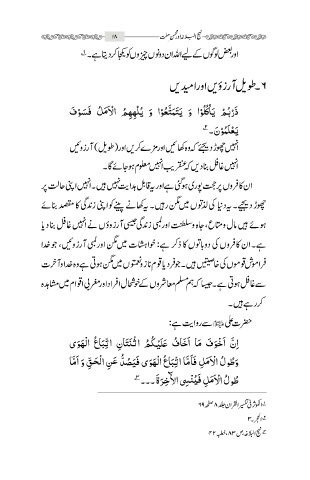 ۱۸
اور بعض لوگوں کے لیے اللہ ان دونوں چیزوں کو یکجا کر دیتا ہے۔ ۱؎
۶۔ طویل آرزوئیں اور امیدیں
ذَرْهُمْ يَأْكُلُوْا وَ يَتَمَتَّعُوْا وَ يُلْهِهِمُ الْاَمَلُ فَسَوْفَ
يَعْلَمُوْنَ۔ ۲؎
انہیں چھوڑ دیجیے کہ وہ کھائیں اور مزے کریں اور (طویل) آرزوئیں
انہیں غافل بنا دیں کہ عنقریب انہیں معلوم ہو جائے گا۔
ان کافروں پر حجت پوری ہوگئی ہے اور یہ قابل ہدایت نہیں ہیں۔ انہیں اپنی حالت پر
چھوڑ دیجیے۔ یہ دنیا کی لذتوں میں مگن رہیں۔ یہ کھانے پینے کو اپنی زندگی کا مقصد بنائے
ہوئے ہیں مال و متاع، جاہ و سلطنت اور لمبی زندگی جیسی آرزوؤں نے انہیں غافل بنا دیا
ہے۔ ان کافروں کی دو باتوں کا ذکر ہے: خواہشات میں مگن اور لمبی آرزوئیں، جو خدا
فراموش قوموں کی خاصیتیں ہیں۔ جو فرد یا قوم ناز و نعمتوں میں مگن ہوتی ہے وہ خدا و آخرت
سے غافل ہوتی ہے۔ جیسا کہ ہم مسلم معاشروں کے خوشحال افراد اور مغربی اقوام میں مشاہدہ
کر رہے ہیں۔
حضرت علی سے روایت ہے:
اِنَّ اَخْوَفَ مَا اَخَافُ عَلَيْكُمُ اثْنَتَانِ اتِّبَاعُ الْهَوٰى
وَطُوْلُ الْاَمَلِ فَاَمَّا اتِّبَاعُ الْهَوٰى فَيَصُدُّ عَنِ الْحَقِّ وَ اَمَّا
طُوْلُ الْاَمَلِ فَيُنْسِى الْاٰخِرَةَ ۔۔۔ ۳؎
۱؎ الکوثر فی تفسیر القرآن جلد ۸ صفحہ ۶۹
۲؎ الحجر۔۳
۳؎ نہج البلاغہ ص ۸۳، خطبہ ۴۲